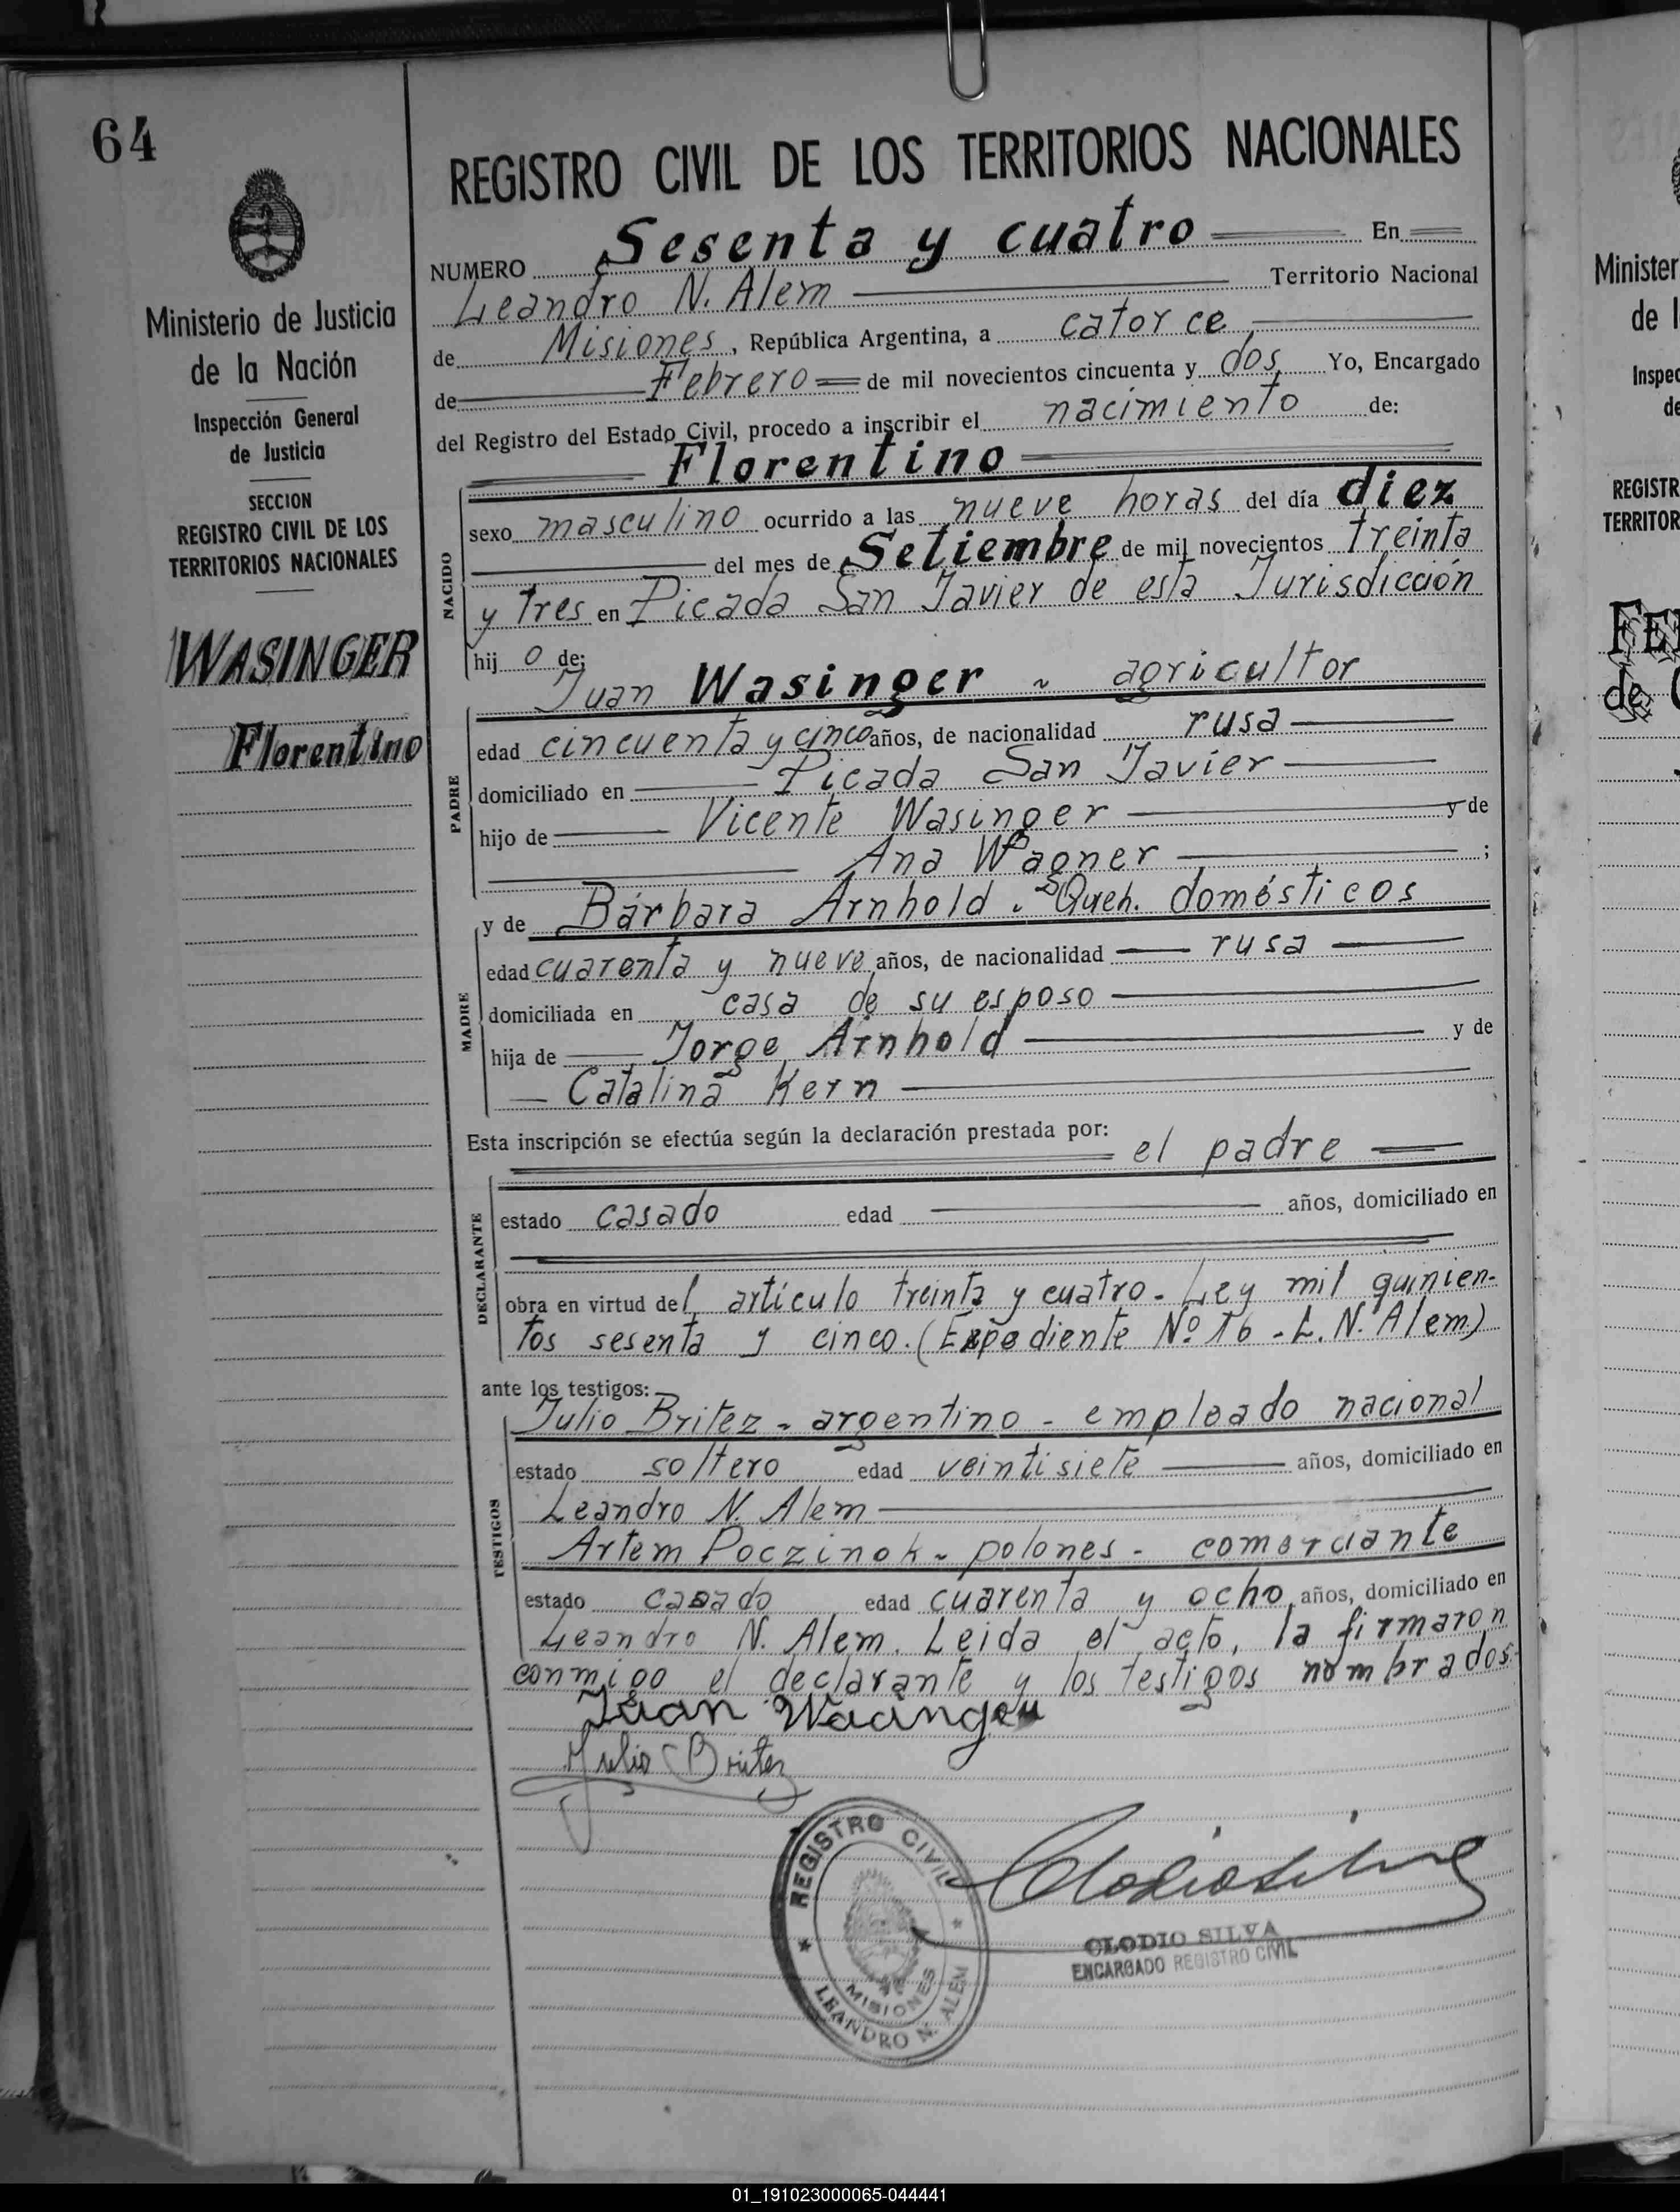 64
Ministerio de Justicia
de la Nación
Inspección General
de Justicia
SECCION
REGISTRO CIVIL DE LOS
TERRITORIOS NACIONALES
WASINGER
Florentino
REGISTRO CIVIL DE LOS TERRITORIOS NACIONALES
NUMERO Sesenta y cuatro En
Leandro N. Alem Territorio Nacional
de Misiones, República Argentina, a catorce
de Febrero de mil novecientos cincuenta y dos Yo, Encargado
del Registro del Estado Civil, procedo a inscribir el nacimiento de:
Florentino
NACIDO
sexo masculino ocurrido a las nueve horas del día diez
del mes de Setiembre de mil novecientos treinta
y tres en Picada San Javier de esta Jurisdicción
hijo de:
Juan Wasinger - agricultor
PADRE
edad cincuenta y cinco años, de nacionalidad rusa
domiciliado en Picada San Javier
hijo de Vicente Wasinger y de
Ana Wagner ;
y de Bárbara Arnhold. Queh. domésticos
MADRE
edad cuarenta y nueve años, de nacionalidad rusa
domiciliada en casa de su esposo
hija de Jorge Arnhold y de
Catalina Kern
Esta inscripción se efectúa según la declaración prestada por: el padre
DECLARANTE
estado casado edad años, domiciliado en
obra en virtud del artículo treinta y cuatro - Ley mil quinien-
tos sesenta y cinco. (Expediente Nº 16 - L. N. Alem)
ante los testigos:
Julio Britez - argentino - empleado nacional
TESTIGOS
estado soltero edad veintisiete años, domiciliado en
Leandro N. Alem
Artem Poczinok - polones - comerciante
estado casado edad cuarenta y ocho años, domiciliado en
Leandro N. Alem. Leida el acto, la firmaron
conmigo el declarante y los testigos nombrados.
Juan
Julio Britez
REGISTRO CIVIL
MISIONES
LEANDRO N. ALEM
CLODIO SILVA
ENCARGADO REGISTRO CIVIL
Minister
de l
Inspec
de
REGISTR
TERRITOR
de
01_191023000065-044441